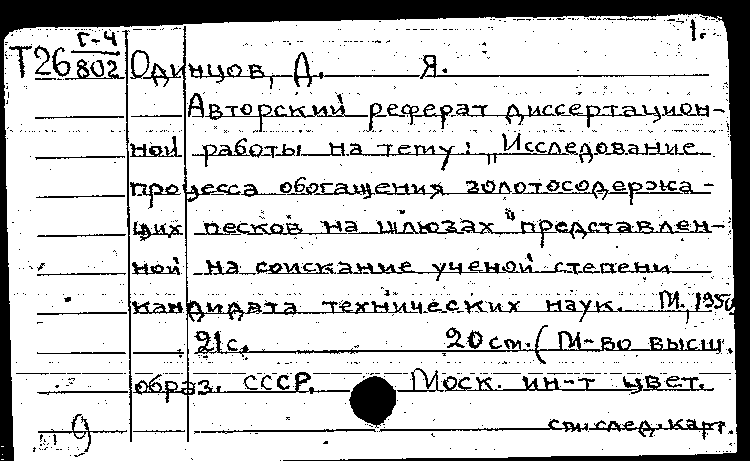 1.
Т26 г-4/802 Одинцов, Д. Я.
Авторский реферат диссертацион-
ной работы на тему: „Исследование
процесса обогащения золотосодержа-
щих песков на шлюзах" представлен-
ной на соискание ученой степени
кандидата технических наук. М.,
21с. 20 cm. (М-во высш.
образ. СССР. Моск. ин-т цвет.
см. след. карт.
9